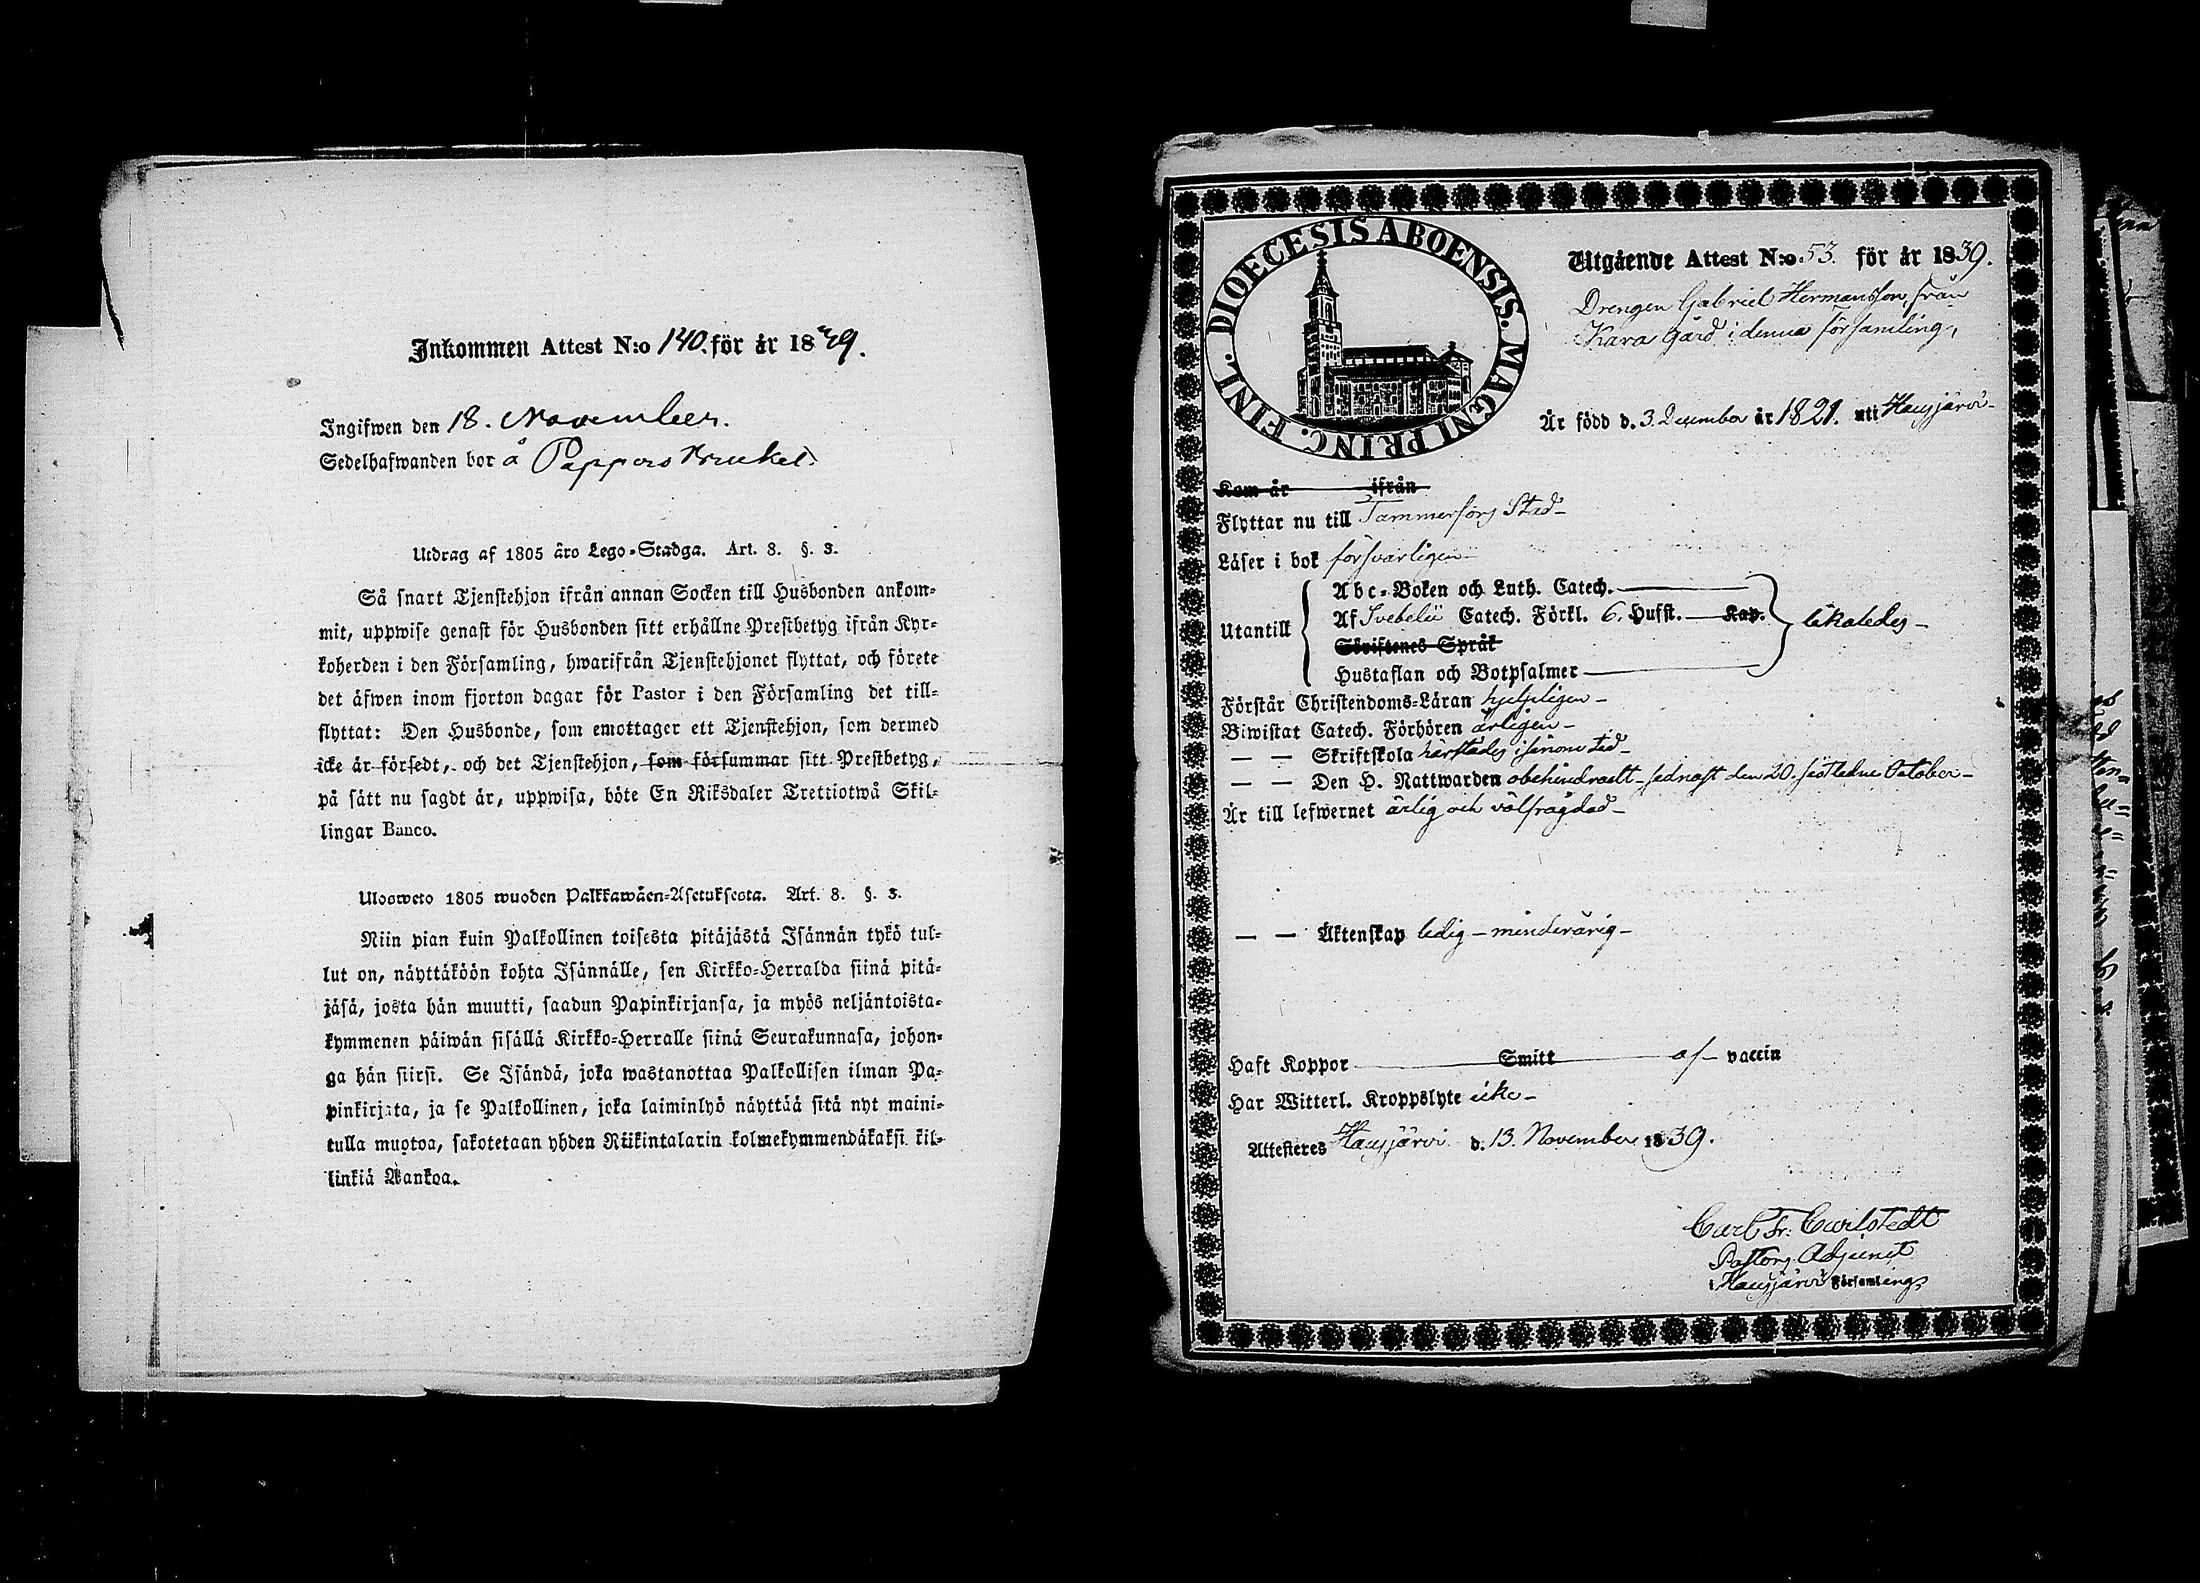 Inkommen Attest N:o 140. för år 1839.
Ingifwen den 18. November.
Sedelhafwanden bor å Pappersbruket.
Utdrag af 1805 års Lego-Stadga. Art. 8. §. 3.
Så snart Tjenstehjon ifrån annan Socken till Husbonden ankom-
mit, uppwise genast för Husbonden sitt erhållne Prestbetyg ifrån Kyr-
koherden i den Församling, hwarifrån Tjenstehjonet flyttat, och förete
det äfwen inom fjorton dagar för Pastor i den Församling det till-
flyttat: Den Husbonde, som emottager ett Tjenstehjon, som dermed
icke är försedt, och det Tjenstehjon, som försummar sitt Prestbetyg,
på sätt nu sagdt är, uppwisa, böte En Riksdaler Trettiotwå Skil-
lingar Banco.
Ulosweto 1805 wuoden Palkkawäen-Asetuksesta. Art. 8. §. 3.
Niin pian kuin Palkollinen toisesta pitäjästä Isännän tykö tul-
lut on, näyttäköön kohta Isännälle, sen Kirkko-Herralda siinä pitä-
jäsä, josta hän muutti, saadun Papinkirjansa, ja myös neljäntoista-
kymmenen päiwän sisällä Kirkko-Herralle siinä Seurakunnasa, johon-
ga hän siirsi. Se Isändä, joka wastanottaa Palkollisen ilman Pa-
pinkirjata, ja se Palkollinen, joka laiminlyö näyttää sitä nyt maini-
tulla muotoa, sakotetaan yhden Riikintalarin kolmekymmendäkaksi kil-
linkiä Bankoa.
DIOECESIS ABOENSIS. MAGNI PRINC. FINL.
Utgående Attest N:o 53. för år 1839.
Drengen Gabriel Hermansson, från
Kara gård i denna församling,
Är född d. 3. December år 1821. uti Hausjärvi
Kom år ifrån
Flyttar nu till Tammerfors Stad
Läser i bok försvarligen
Abc-Boken och Luth. Catech.
Utantill Af Svebelii Catech. Förkl. 6. Hufst. Kap. likaledes
Skriftenes Språk
Hustaflan och Botpsalmer
Förstår Christendoms-Läran hjelpligen
Biwistat Catech. Förhören årligen
— — Skriftskola härstädes i sinom tid
— — Den H. Nattwarden obehindradt sednast den 20. sistledne October
Är till lefwernet ärlig och välfrägdad
— — Äktenskap ledig minderårig
Haft Koppor Smitt af vaccin
Har Witterl. Kroppslyte icke
Attesteres Hausjärvi d. 13. November 1839.
Carl Fr: Carlstedt
Pastors Adjunct
i Hausjärvi Församling